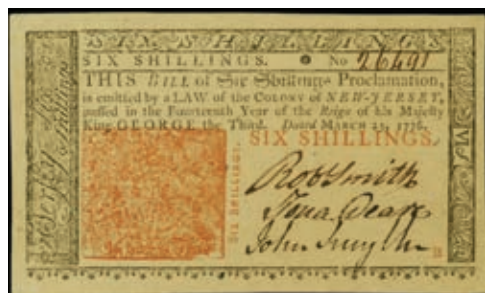 SIX SHILLINGS
SIX SHILLINGS. No 26491
THIS BILL of Six Shillings Proclamation,
is emitted by a LAW of the COLONY of NEW-JERSEY,
passed in the Fourteenth Year of the Reign of his Majesty
King GEORGE the Third. Dated MARCH 25, 1776.
SIX SHILLINGS.
SIX SHILLINGS.
Rob Smith
Jona Deare
John Smyth